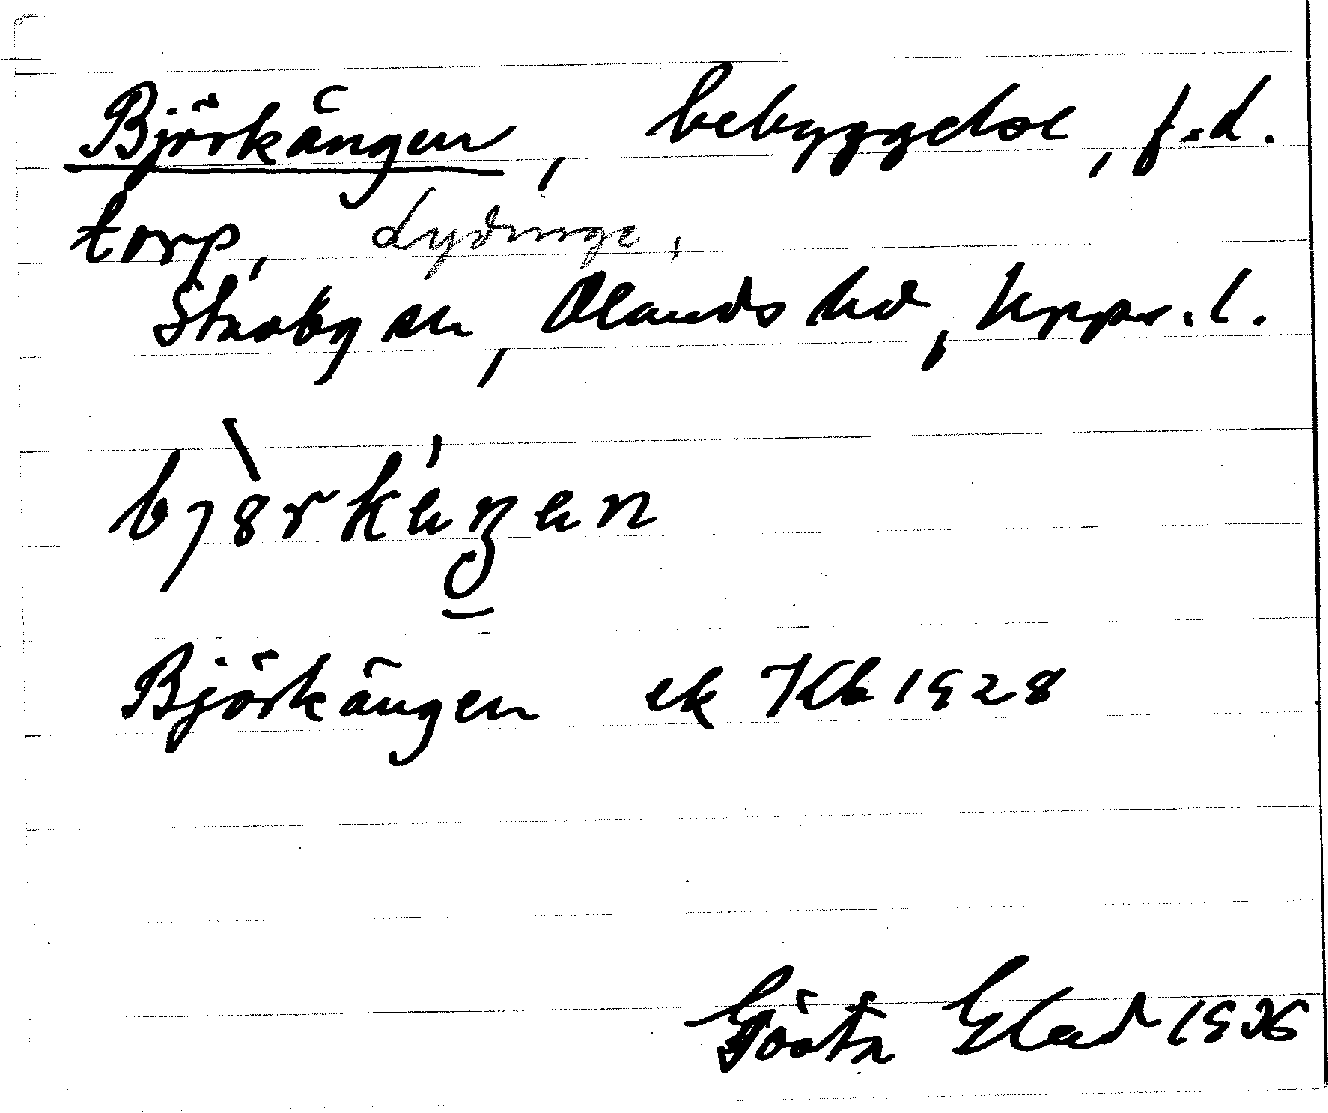 Björkängen, bebyggelse, f.d.
torp, Lydinge,
Stavby sn, Olands hd, Upps. l.
Björkängen ek Kb 1928
Gösta Elad 1936